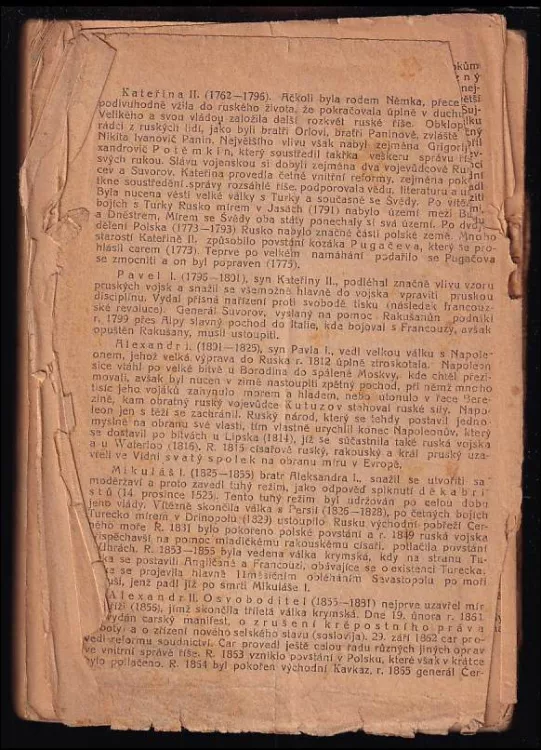 okům
z n ý
nej-
Kateřina II. (1762—1796). Ačkoli byla rodem Němka, přece
větší
podivuhodně vžila do ruského života, že pokračovala úplně v duchu
Velikého a svou vládou založila další rozkvět ruské říše. Obklopi
rádci z ruských lidí, jako byli bratři Orlovi, bratři Paninové, zvláště
Nikita Ivanovič Panin. Největšího vlivu však nabyl zejména Grigorij
xandrovič Potěmkin, který soustředil takřka veškeru správu říš
svých rukou. Slávu vojenskou si dobyli zejména dva vojevůdcové Ru
cev a Suvorov. Kateřina provedla četné vnitřní reformy, zejména pok
tkne soustředění správy rozsáhlé říše, podporovala vědu, literaturu a u
Byla nucena vésti velké války s Turky a současně se Švédy. Po vítěz
bojích s Turky Rusko mírem v Jasách (1791) nabylo území mezi Bu
a Dněstrem. Mírem se Švédy oba státy ponechaly si svá území. Po dvoj
dělení Polska (1773—1793) Rusko nabylo značné části polské země. Mnoho
starostí Kateřině II. způsobilo povstání kozáka Pugačeva, který se pro-
hlásil carem (1773). Teprve po velkém namáhání podařilo se Pugačova
se zmocniti a on byl popraven (1775).
Pavel I. (1796—1801), syn Kateřiny II., podléhal značně vlivu vzoru
pruských vojsk a snažil se všemožně hlavně do vojska vpraviti pruskou
disciplinu. Vydal přísná nařízení proti svobodě tisku (následek francouz-
ské revoluce). Generál Suvorov, vyslaný na pomoc Rakušanům podnikl
r. 1799 přes Alpy slavný pochod do Italie, kda bojoval s Francouzy, avšak
opuštěn Rakušany, musil ustoupiti.
Alexandr I. (1801—1825), syn Pavla I., vedl velkou válku s Napole-
onem, jehož velká výprava do Ruska r. 1812 úplně ztroskotala. Napoleon
sice vtáhl po velké bitvě u Borodina do spálené Moskvy, kde chtěl přezi-
movati, avšak byl nucen v zimě nastoupiti zpětný pochod, při němž mnoho
tisíc jeho vojáků zahynulo mrazem a hladem, nebo utonulo v řece Bere-
zině, kam obratný ruský vojevůdce Kutuzov stahoval ruské síly. Napo-
leon jen s těží se zachránil. Ruský národ, který se tehdy postavil jedno-
myslně na obranu své vlasti, tím vlastně urychlil konec Napoleonův, který
se dostavil po bitvách u Lipska (1814), jíž se súčastnila také ruská vojska
a u Waterloo (1816). R. 1815 císařové ruský, rakouský a král pruský uza-
vřeli ve Vídni svatý spolek na obranu míru v Evropě.
Mikuláš I. (1825—1855) bratr Aleksandra I., snažil se utvořiti sa-
moděržaví a proto zavedl tuhý režim, jako odpověď spiknutí děkabri-
stů (14. prosince 1525). Tento tuhý režim byl udržován po celou dobu
jeho vlády. Vítězně skončila válka s Persií (1826—1828), po četných bojích
Turecko mírem v Drinopolu (1829) ustoupilo Rusku východní pobřeží Čer-
ného moře R. 1831 bylo pokořeno polské povstání a r. 1849 ruská vojska
přispěchavší na pomoc mladičkému rakouskému císaři, potlačila povstání
v Uhrách. R. 1853—1855 byla vedena válka krymská, kdy na stranu Tu-
ka se postavili Angličané a Francouzi, obávajíce se o existenci Turecka.
se projevila hlavně 11měsíčním obléháním Sevastopolu po moři
souši, jenž padl již po smrti Mikuláše I.
Alexandr II. Osvoboditel (1855—1831) nejprve uzavřel mír
(1856), jímž skončila tříletá válka krymská. Dne 19. února r. 1861
vydán carský manifest, o zrušení krěpostního práva
boty a o zřízení nového selského stavu (soslovija). 29. září 1862 car pro-
vedl reformu soudnictví. Car provedl ještě celou řadu různých jiných oprav
ve vnitrní správě říše. R. 1853 vzniklo povstání v Polsku, které však v krátce
bylo potlačeno. R. 1854 byl pokořen východní Kavkaz, r. 1855 generál Čer-